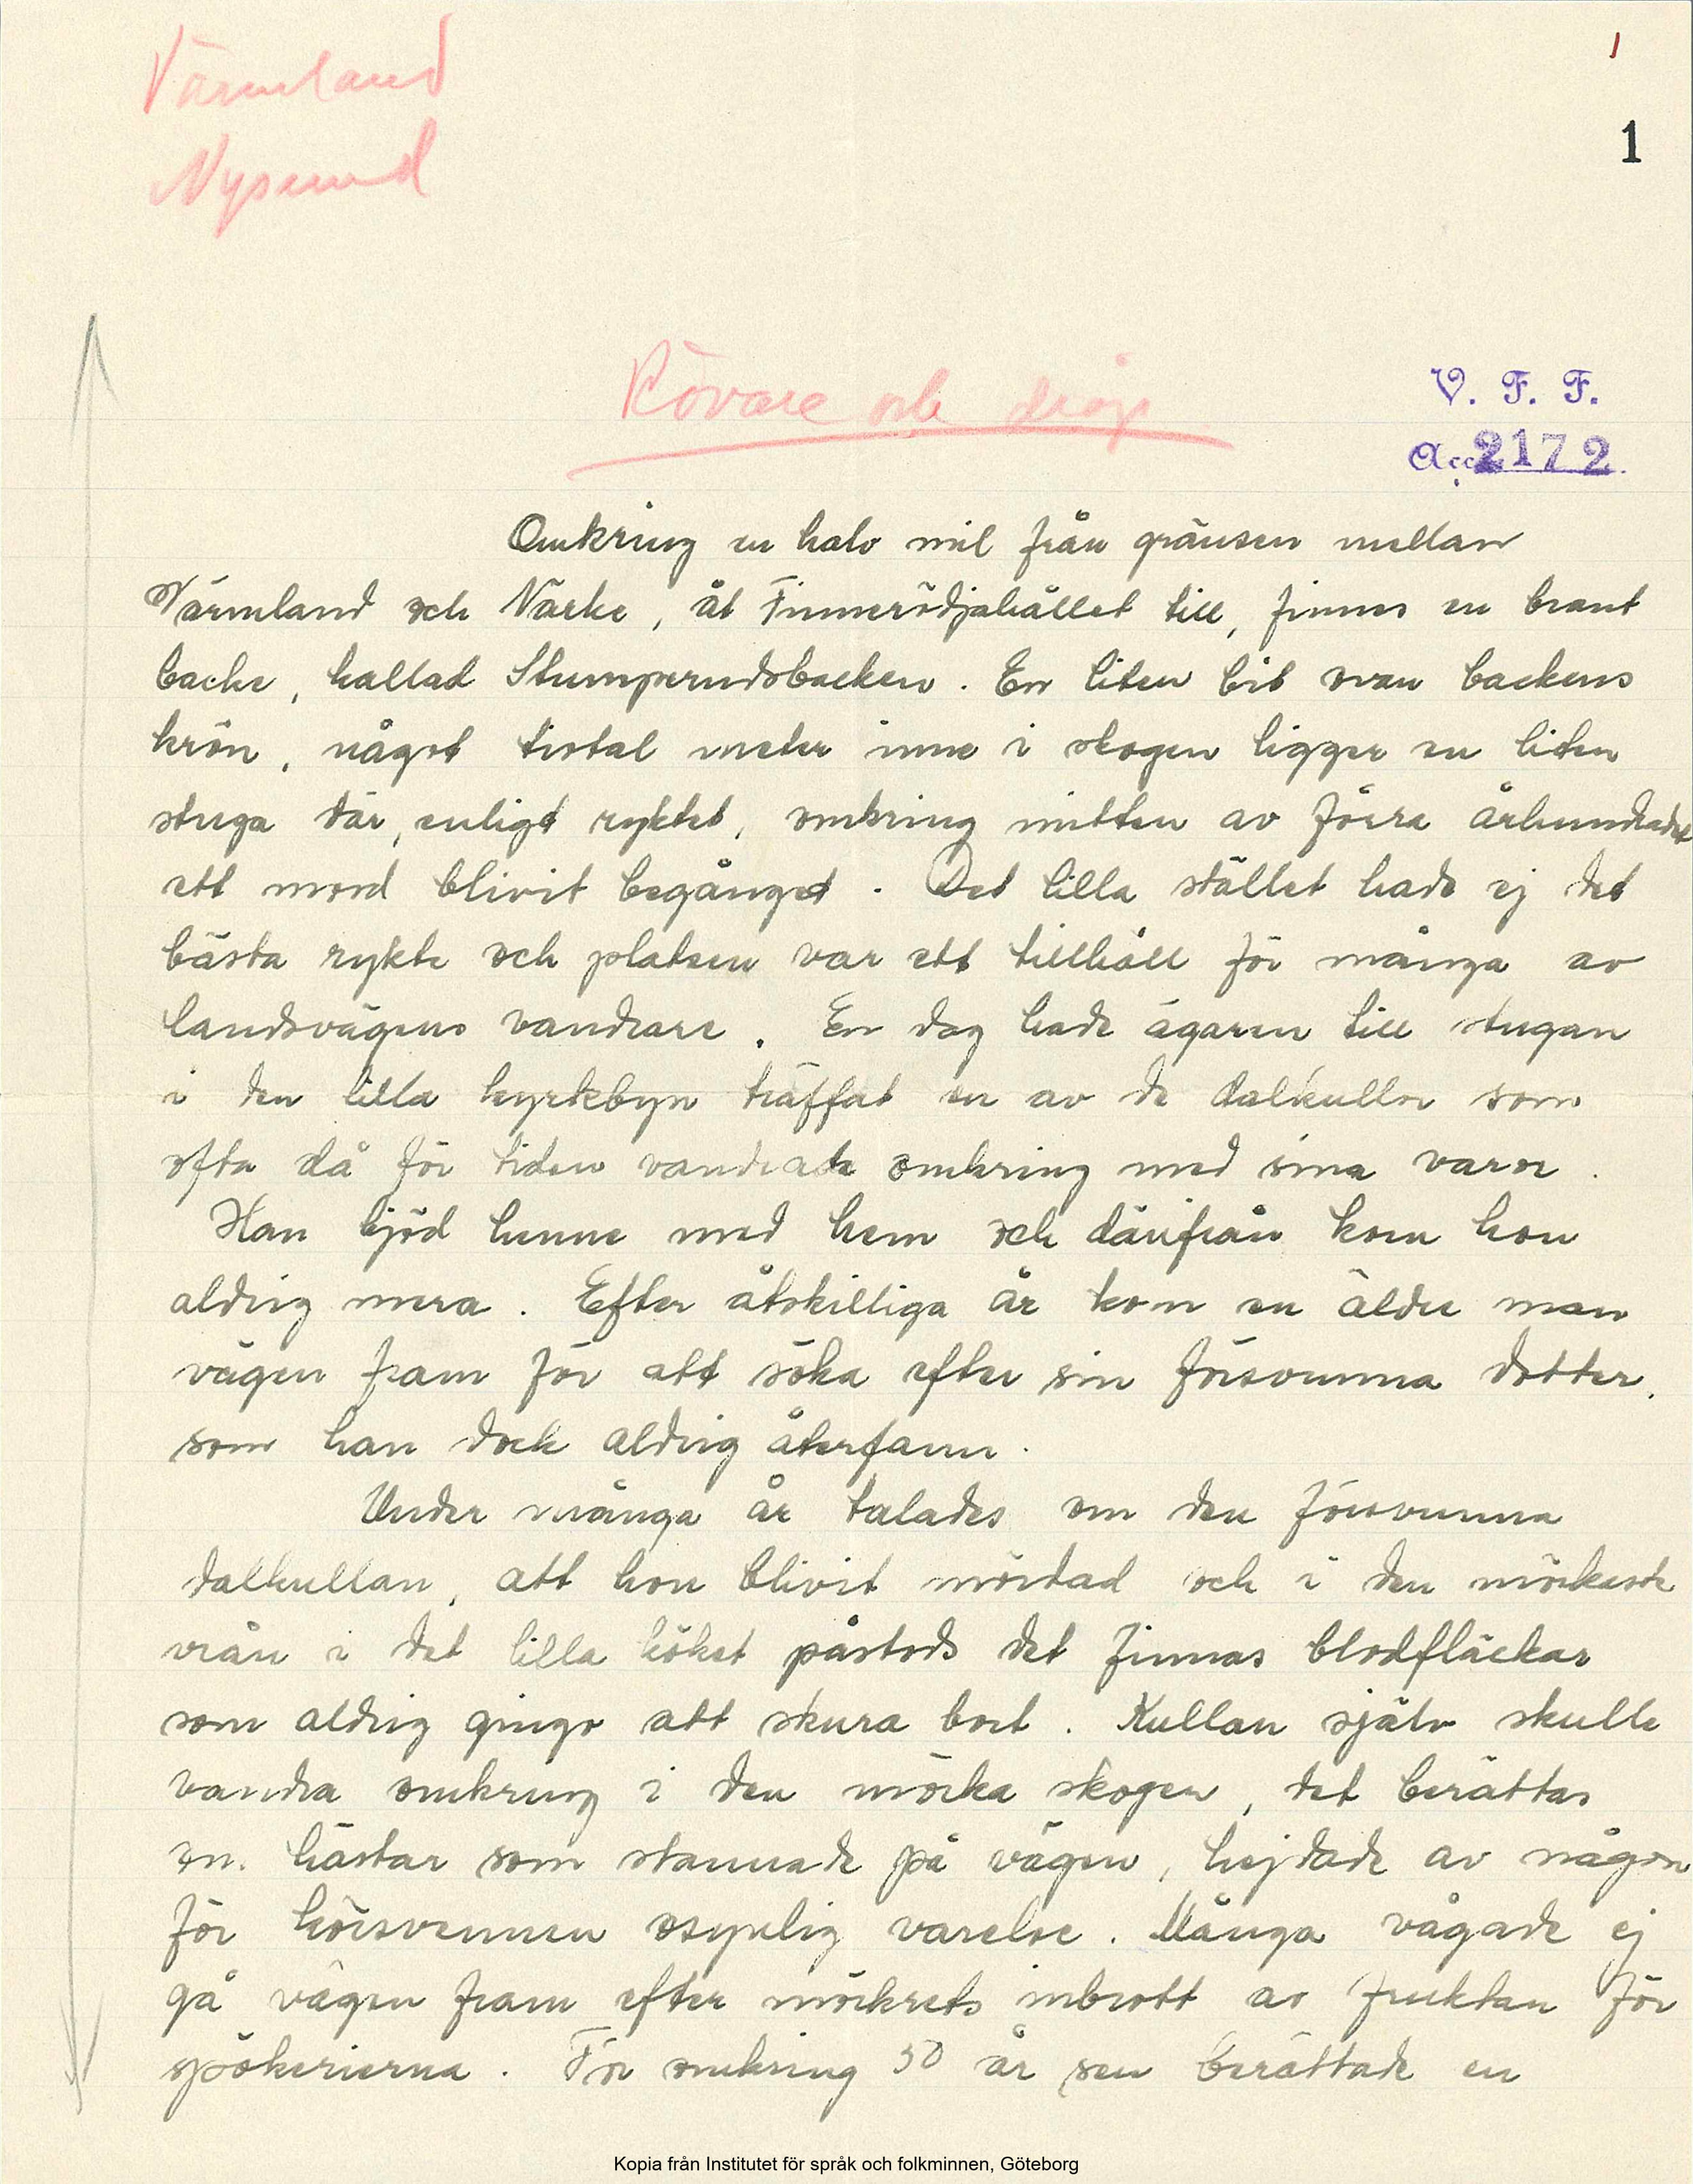 1
Värmland
Nysund
1
Rövare och dråp
V. F. F.
Acc. 2172.
Omkring en halv mil från gränsen mellan
Värmland och Närke, åt Finnerödjahållet till, finnes en brant
backe, kallad Stumperudsbacken. En liten bit ovan backens
krön, något tiotal meter inne i skogen ligger en liten
stuga där, enligt ryktet, omkring mitten av förra århundradet
ett mord blivit begånget. Det lilla stället hade ej det
bästa rykte och platsen var ett tillhåll för många av
landsvägens vandrare. En dag hade ägaren till stugan
i den lilla kyrkbyn träffat en av de dalkullor som
ofta då för tiden vandrade omkring med sina varor.
Han bjöd henne med hem och därifrån kom hon
aldrig mera. Efter åtskilliga år kom en äldre man
vägen fram för att söka efter sin försvunna dotter,
som han dock aldrig återfann.
Under många år talades om den försvunna
dalkullan, att hon blivit mördad och i den mörkaste
vrån i det lilla köket påstods det finnas blodfläckar
som aldrig gingo att skura bort. Kullan själv skulle
vandra omkring i den mörka skogen, det berättas
om hästar som stannade på vägen, hejdade av någon
för körsvennen osynlig varelse. Många vågade ej
gå vägen fram efter mörkrets inbrott av fruktan för
spökerierna. För omkring 50 år sen berättade en
Kopia från Institutet för språk och folkminnen, Göteborg